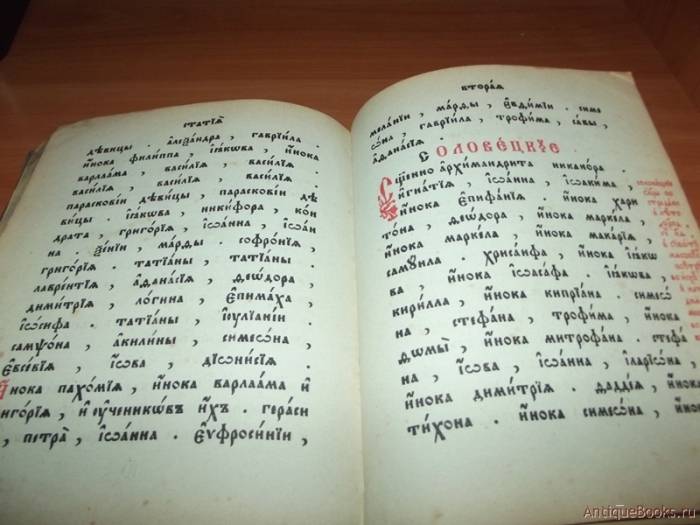 статїѧ̀
дѣвицы . а҆леѯа́ндра , гаврїи́ла .
и҆́нока фили́ппа , і҆са́кѡва , и҆́нока
варлаа́ма , васи́лїѧ . васи́лїѧ .
васи́лїѧ , васи́лїѧ . васи́лїѧ .
параскові́и дѣ́вицы . параскові́и дѣ
вицы . і҆са́кѡва , ники́фора , ко́н
дра́та , григо́рїѧ , і҆ѡа́нна , і҆ѡа́н
на . ѯе́нїи , ма́рѳы . софро́нїѧ ,
григо́рїѧ . татїа́ны . татїа́ны .
лавре́нтїѧ , а҆ѳана́сїѧ , ѳео́дѡра ,
дими́трїѧ , ло́гина , є҆пима́ха ,
і҆ѡ́сифа . татїа́ны , і҆еулїані́и .
самѱо́на , а҆кили́ны , симеѡ́на ,
є҆ѵсе́вїѧ , і҆́ѡва , дїѡни́сїѧ .
и҆́нока пахо́мїѧ , и҆́нока варлаа́ма и҆
григо́рїѧ , и҆ и҆ у҆ченикѡ́въ и҆́хъ . гера́си
, петра̀ , і҆ѡа́нна . є҆ѵфроси́нїи ,
втора́ѧ
мела́нїи , ма́рѳы , є҆ѵдѡкі́и . симе
ѡ́на , гаврїи́ла , трофи́ма , са́вы ,
а҆ѳана́сїѧ .
Соловѣ́цкїѧ
Сщ҃е́нно а҆рхимандри́та никано́ра .
и҆гна́тїѧ , і҆ѡа́нна , і҆ѡаки́ма ,
и҆́нока є҆пифа́нїѧ . и҆́нока хари
то́на , ѳео́дѡра , и҆́нока марке́ла ,
и҆́нока марке́ла , и҆́нока мака́рїѧ ,
самуи́ла . хрїса́нфа , и҆́нока і҆са́кѡ
ва , и҆́нока і҆ѡаса́фа . і҆са́кѡва ,
кири́лла , и҆́нока кипрїа́на . симеѡ́
на , стефа́на , трофи́ма , и҆́нока
ѳомы̀ , и҆́нока митрофа́на . стефа́
на , і҆́ѡва , і҆ѡа́нна , і҆ларїѡ́на ,
и҆́нока дими́трїѧ . ѳадде́ѧ , и҆́нока
ти́хона . и҆́нока симеѡ́на , и҆́нок
AntiqueBooks.ru